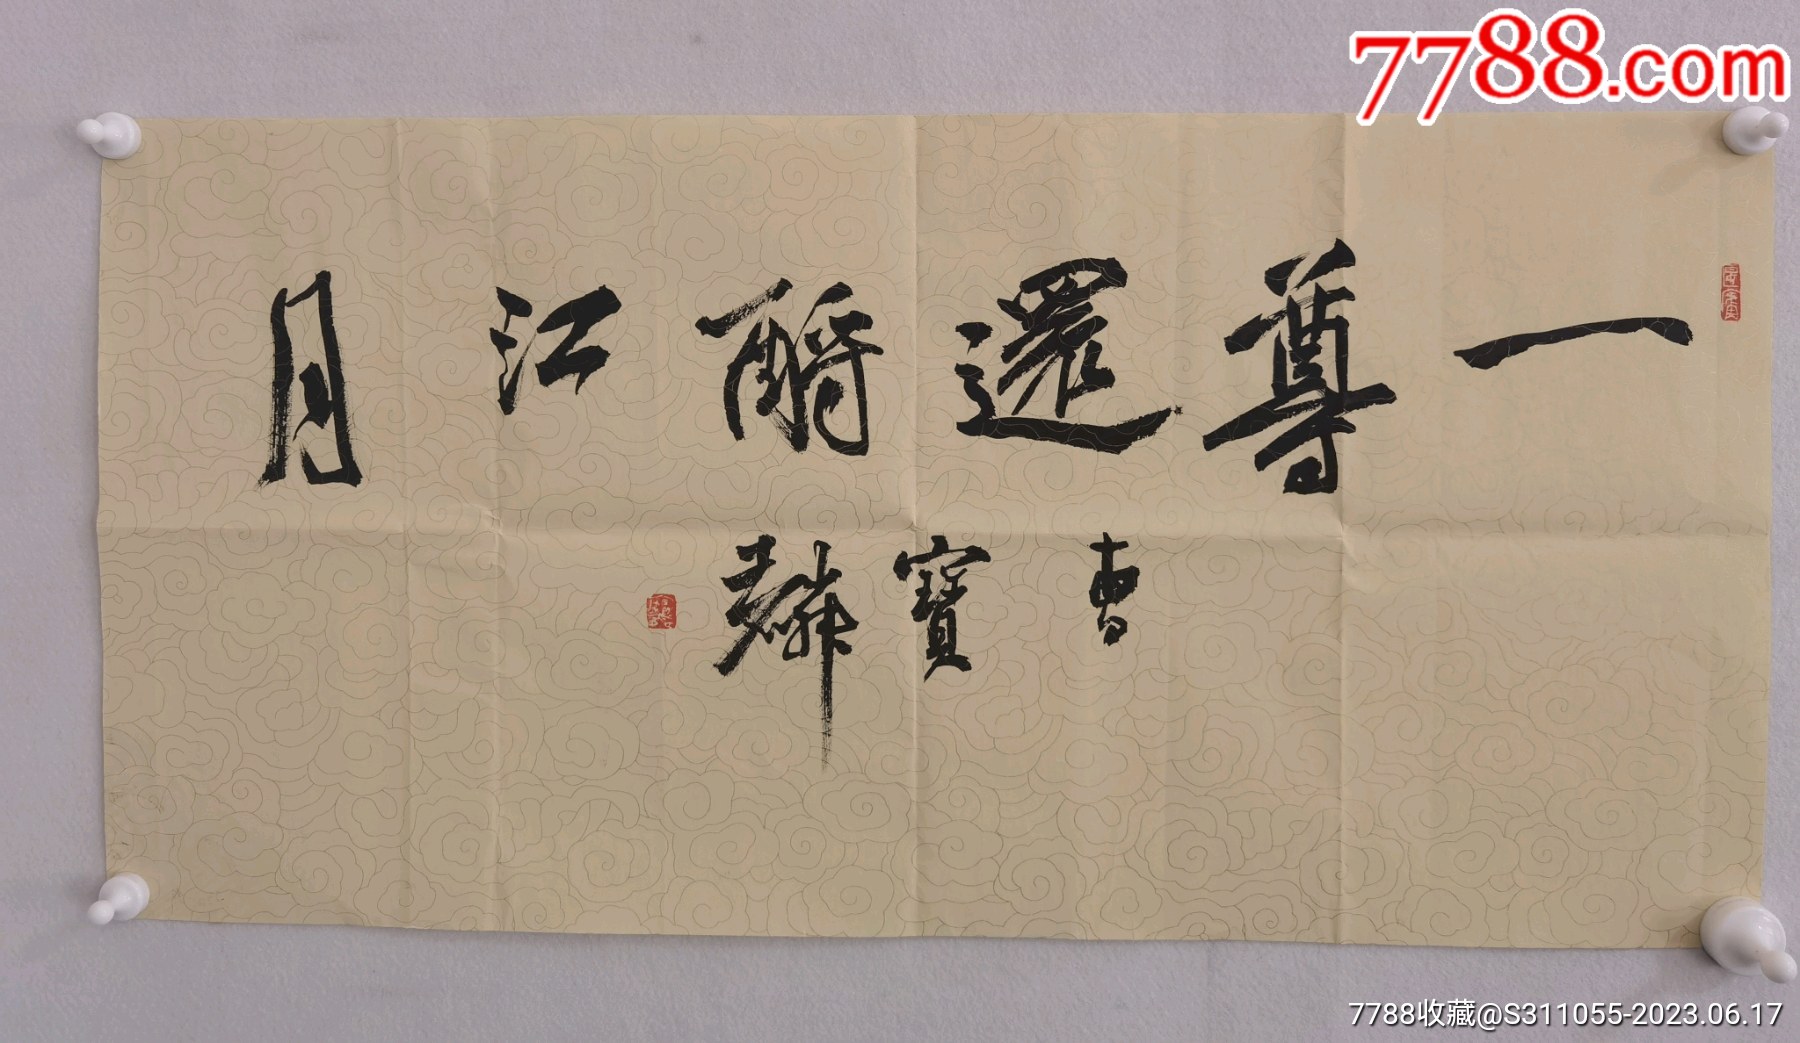 7788.com
一尊還酹江月
曹寶麟
7788收藏@S311055-2023.06.17